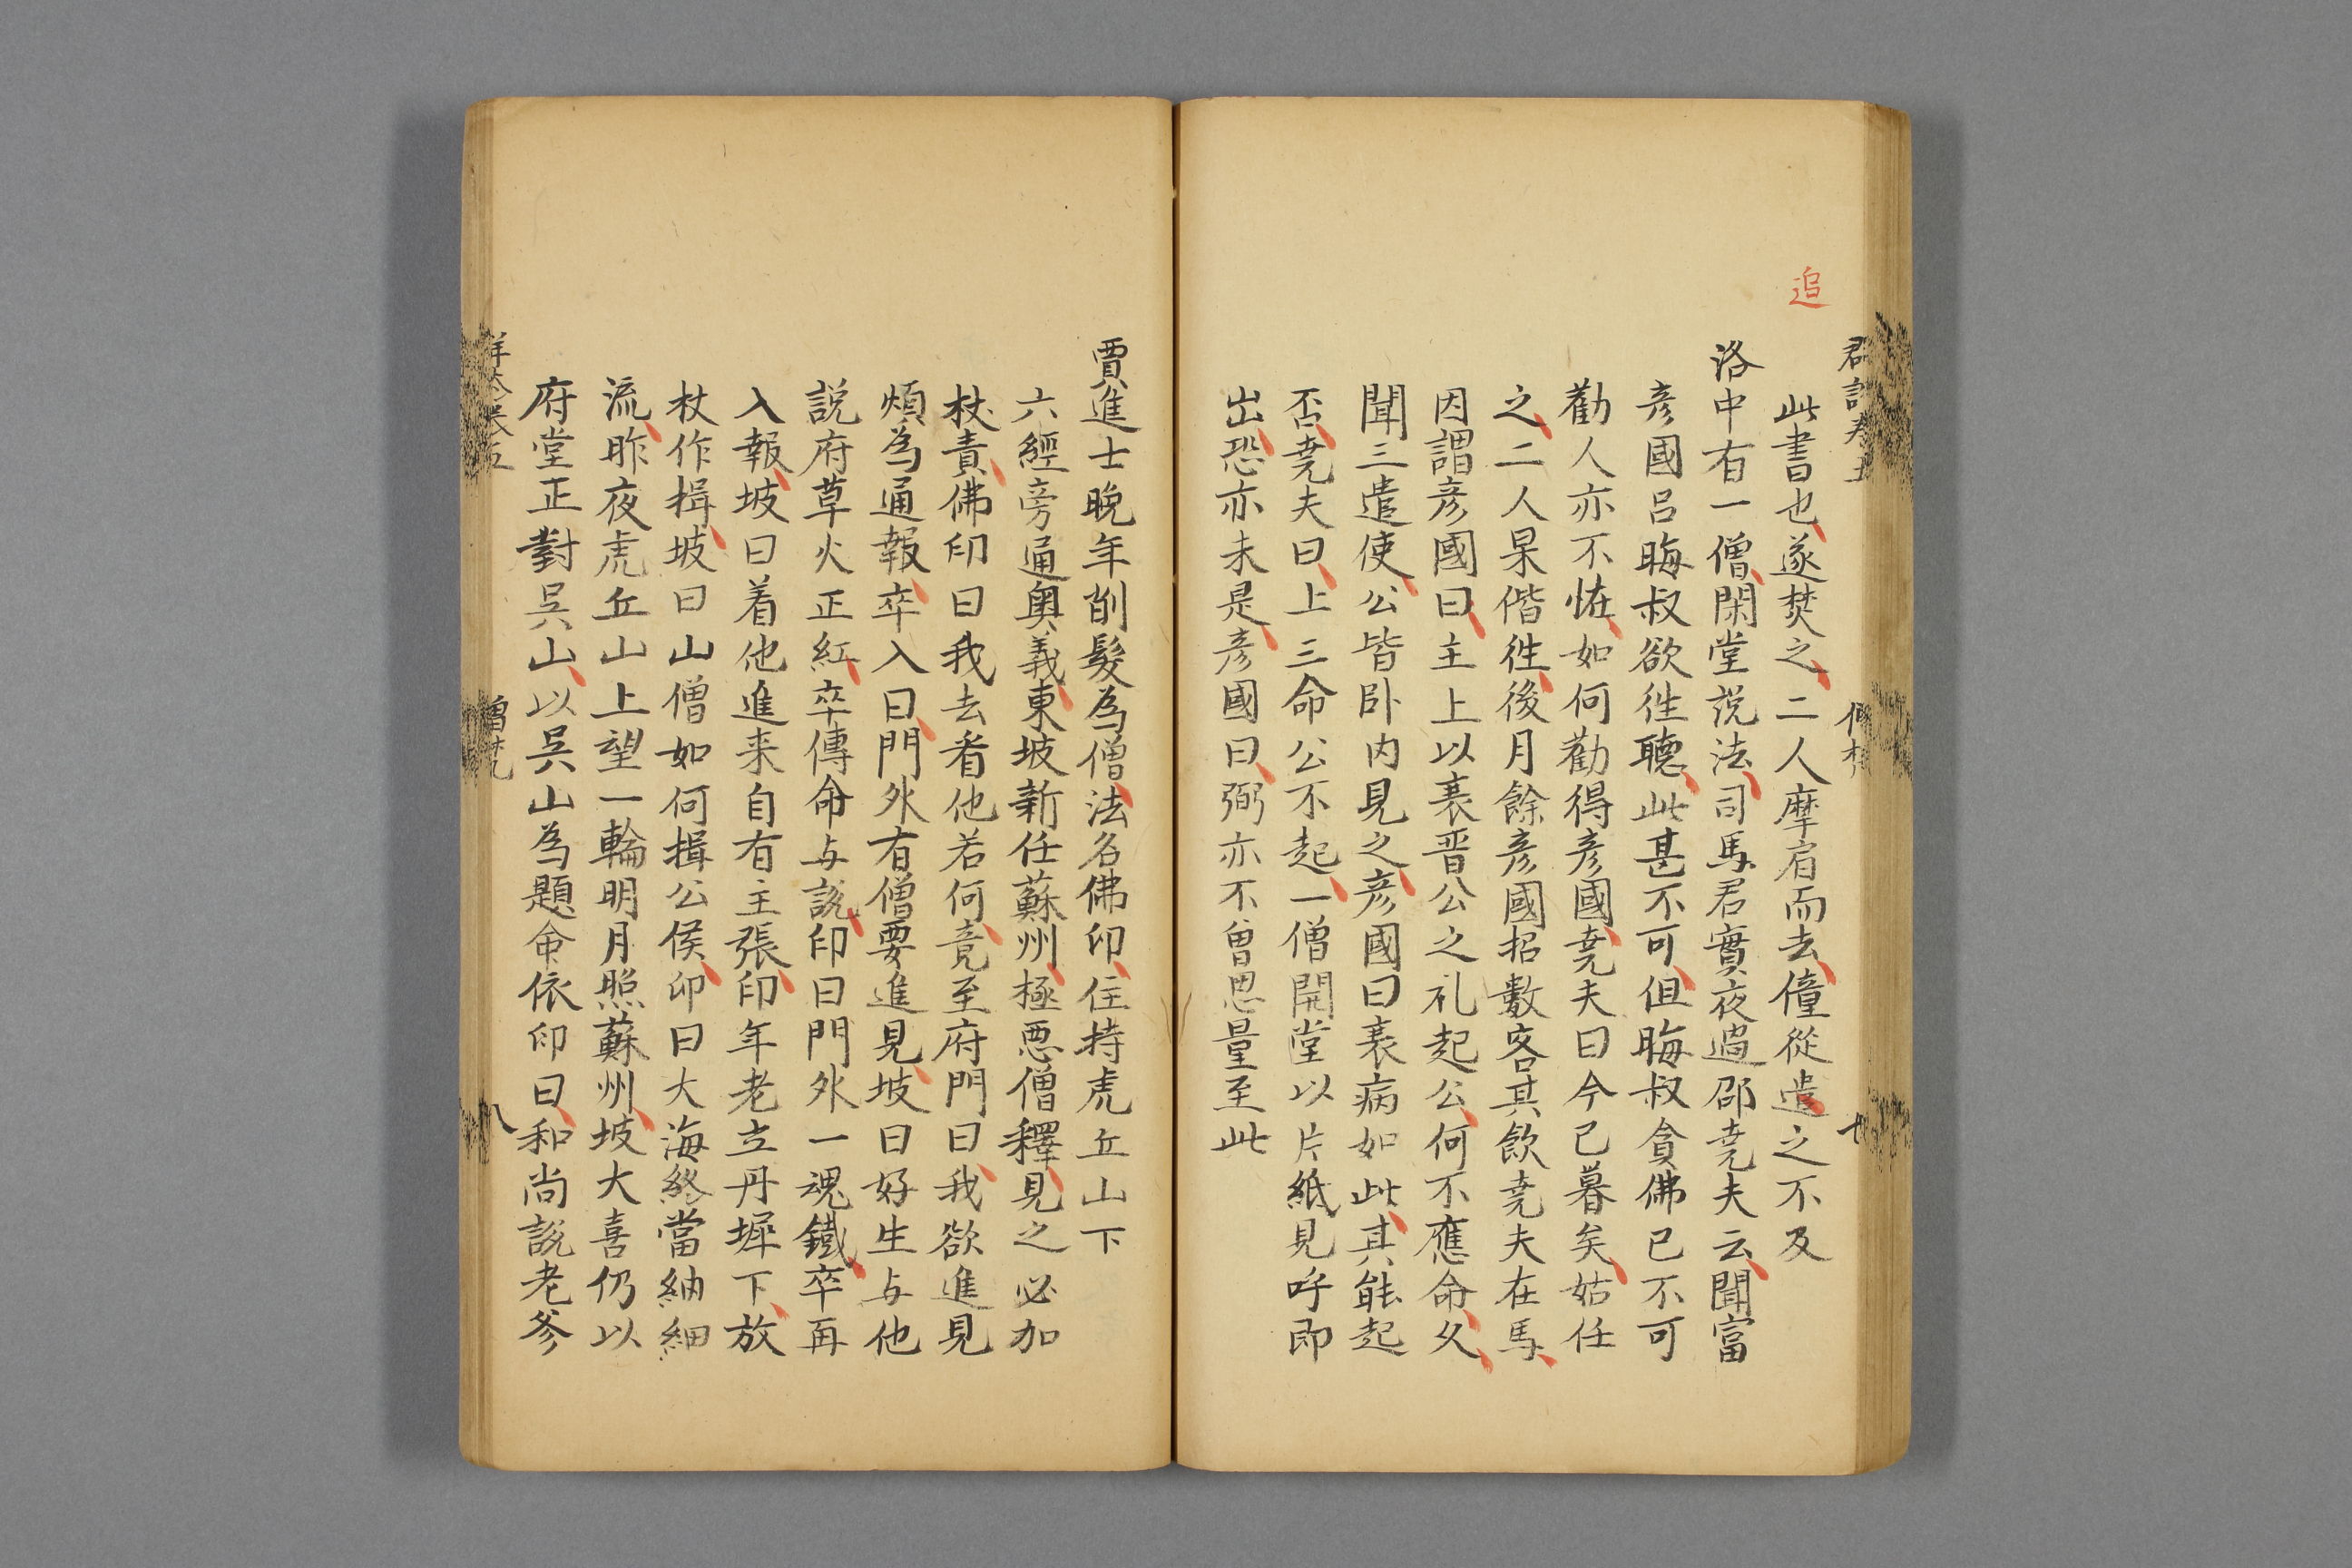 追
此書也遂焚之二人摩肩而去僮從遣之不及
洛中有一僧閑堂説法司馬君實夜過邵堯夫云聞富
彦國呂晦叔欲徃聽此甚不可但晦叔貪佛已不可
勸人亦不恠如何勸得彦國堯夫曰今已暮矣姑任
之二人果偕徃後月餘彦國招數客其飲堯夫在馬
因謂彦國曰主上以裵晋公之礼起公何不應命久
聞三遣使公皆卧内見之彦國曰裵病如此其能起
否堯夫曰上三命公不起一僧開堂以片紙見呼即
出恐亦未是彦國曰弼亦不曽思量至此
賈進士晚年削髮為僧法名佛印住持虎丘山下
六經旁通奥義東坡新任蘇州極惡僧釋見之必加
杖責佛印曰我去看他若何竟至府門曰我欲進見
煩為通報卒入曰門外有僧要進見坡曰好生与他
説府草火正紅卒傳命与説印曰門外一魂鐵卒再
入報坡曰着他進来自有主張印年老立丹墀下放
杖作揖坡曰山僧如何揖公侯印曰大海終當納細
流昨夜虎丘山上望一輪明月照蘇州坡大喜仍以
府堂正對呉山以呉山為題命依印曰和尚説老爹
八